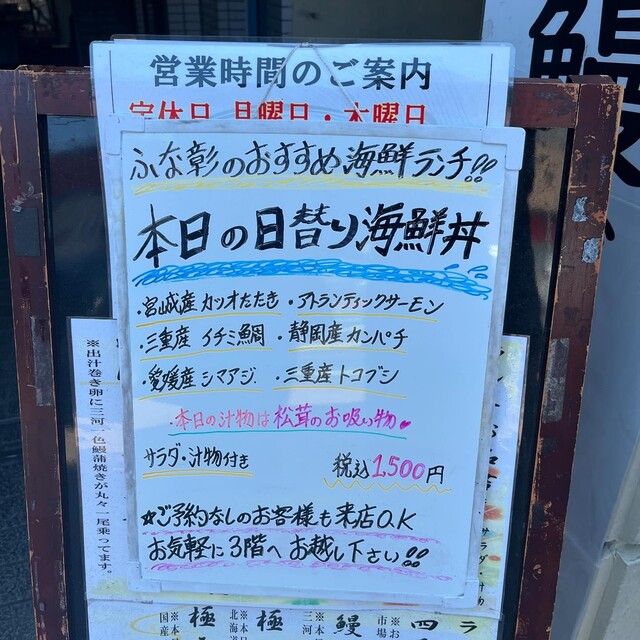 営業時間のご案内
定休日 月曜日・木曜日
ふな彰のおすすめ海鮮ランチ!!
本日の日替り海鮮丼
・宮城産カツオたたき ・アトランティックサーモン
・三重産 イチミ鯛 ・静岡産カンパチ
・愛媛産シマアジ ・三重産トコブシ
・本日の汁物は松茸のお吸い物♥
サラダ・汁物付き 税込1,500円
☆ご予約なしのお客様も来店O.K
お気軽に3階へお越し下さい!!
※出汁巻き卵に三河一色鰻蒲焼きが丸々一尾乗ってます。
鰻